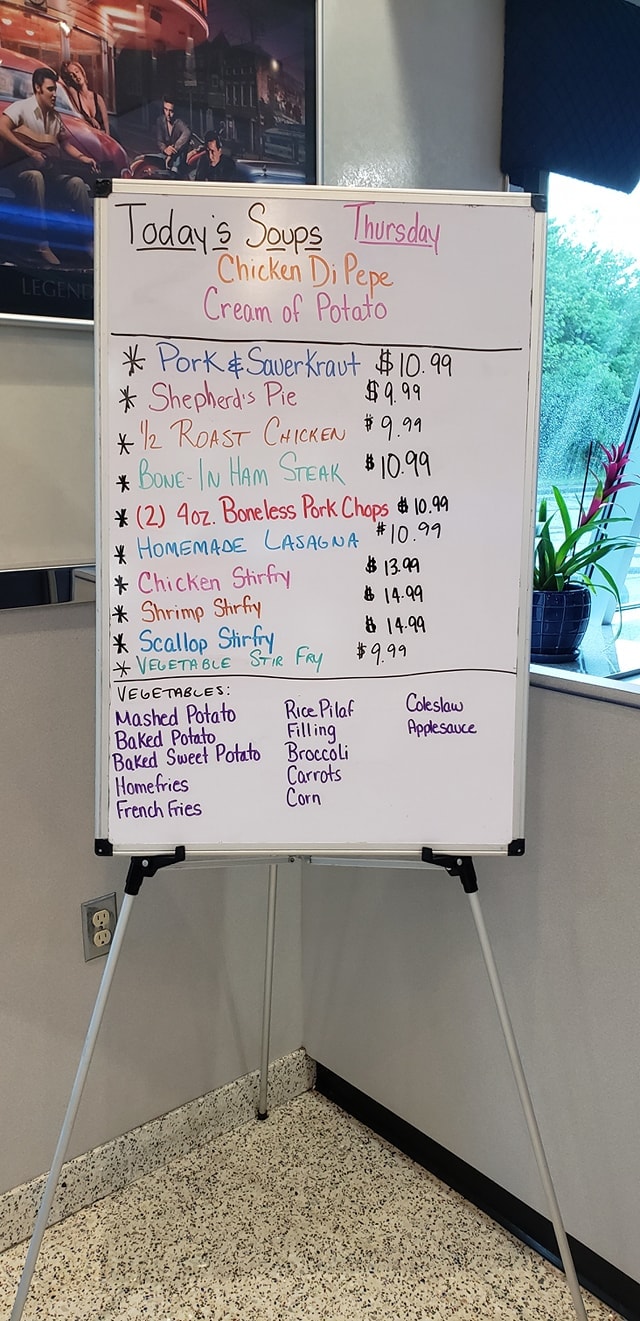 LEGEND
Today's Soups Thursday
Chicken Di Pepe
Cream of Potato
* Pork & Sauerkraut $10.99
* Shepherd's Pie $9.99
* 1/2 ROAST CHICKEN $9.99
* BONE-IN HAM STEAK $10.99
* (2) 4oz. Boneless Pork Chops $10.99
* HOMEMADE LASAGNA $10.99
* Chicken Stirfry $13.99
* Shrimp Stirfry $14.99
* Scallop Stirfry $14.99
* VEGETABLE STIR FRY $9.99
VEGETABLES:
Mashed Potato
Baked Potato
Baked Sweet Potato
Homefries
French Fries
Rice Pilaf
Filling
Broccoli
Carrots
Corn
Coleslaw
Applesauce